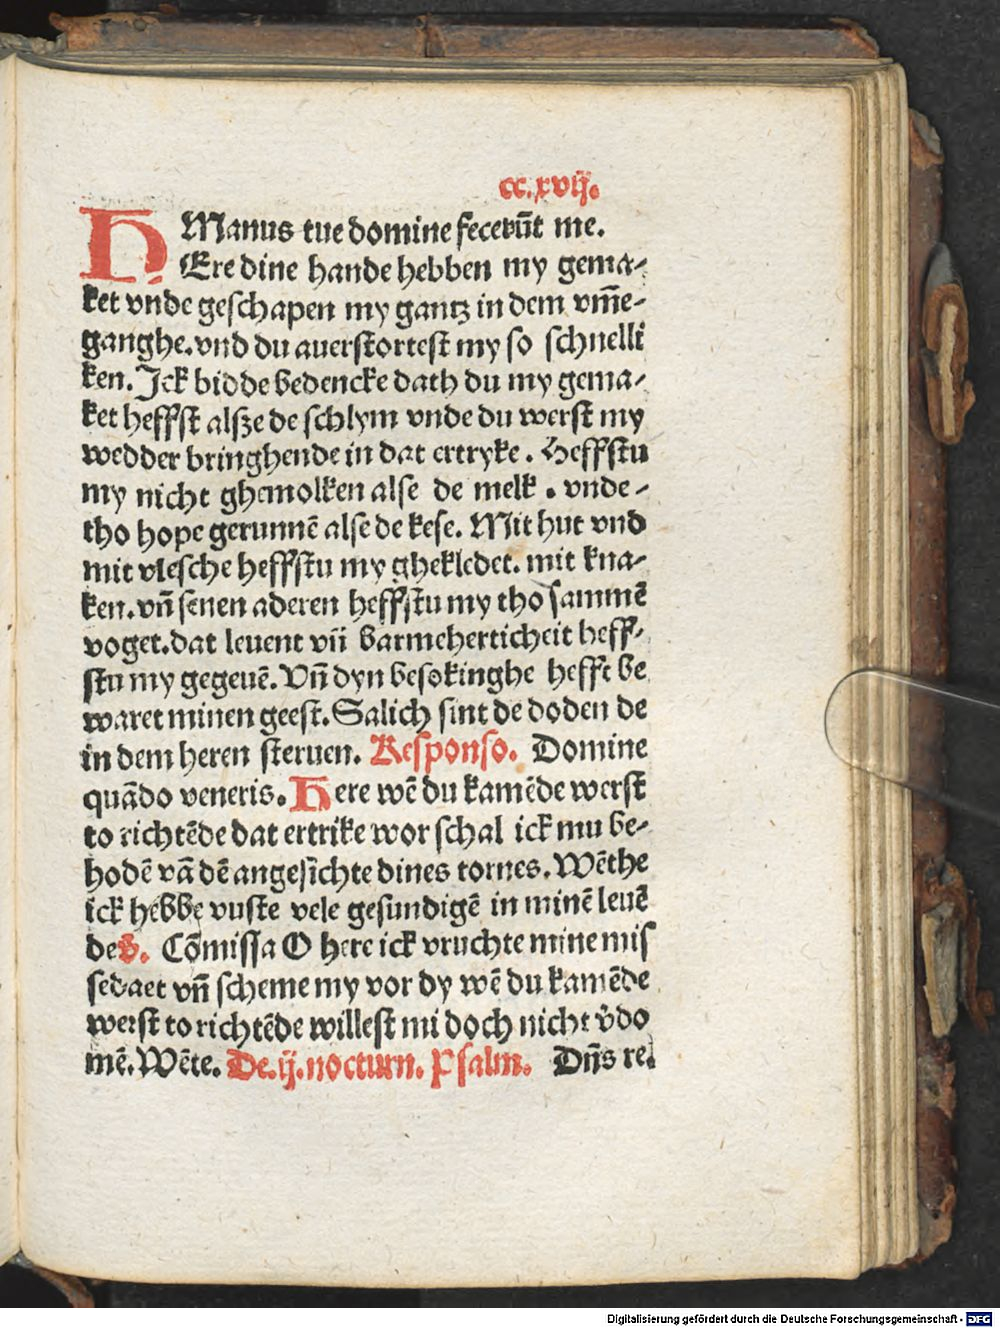 cc.xvij.
Manus tue domine fecerūt me.
HEre dine hande hebben my gema-
ket vnde geschapen my gantz in dem vm̄e-
ganghe. vnd du auerstortest my so schnelli
ken. Ick bidde bedencke dath du my gema-
ket heffst alsze de schlym vnde du werst my
wedder bringhende in dat ertryke. Heffstu
my nicht ghemolken alse de melk. vnde-
tho hope gerunnē alse de kese. Mit hut vnd
mit vlesche heffstu my ghekledet. mit kna-
ken. vn̄ senen aderen heffstu my tho sammē
voget. dat leuent vn̄ barmeherticheit heff-
stu my gegeuē. Vn̄ dyn besokinghe hefft be
waret minen geest. Salich sint de doden de
in dem heren steruen. Responso. Domine
quādo veneris. Here wē du kamēde werst
to richtēde dat ertrike wor schal ick mu be-
hodē vā dē angesichte dines tornes. Wēthe
ick hebbe vuste vele gesundigē in minē leuē
de v. Cōmissa O here ick vruchte mine mis
sedaet vn̄ scheme my vor dy wē du kamēde
werst to richtēde willest mi doch nicht v̓do
mē. Wēte. De .ij. nocturn. Psalm. Dn̄s re.
Digitalisierung gefördert durch die Deutsche Forschungsgemeinschaft - DFG